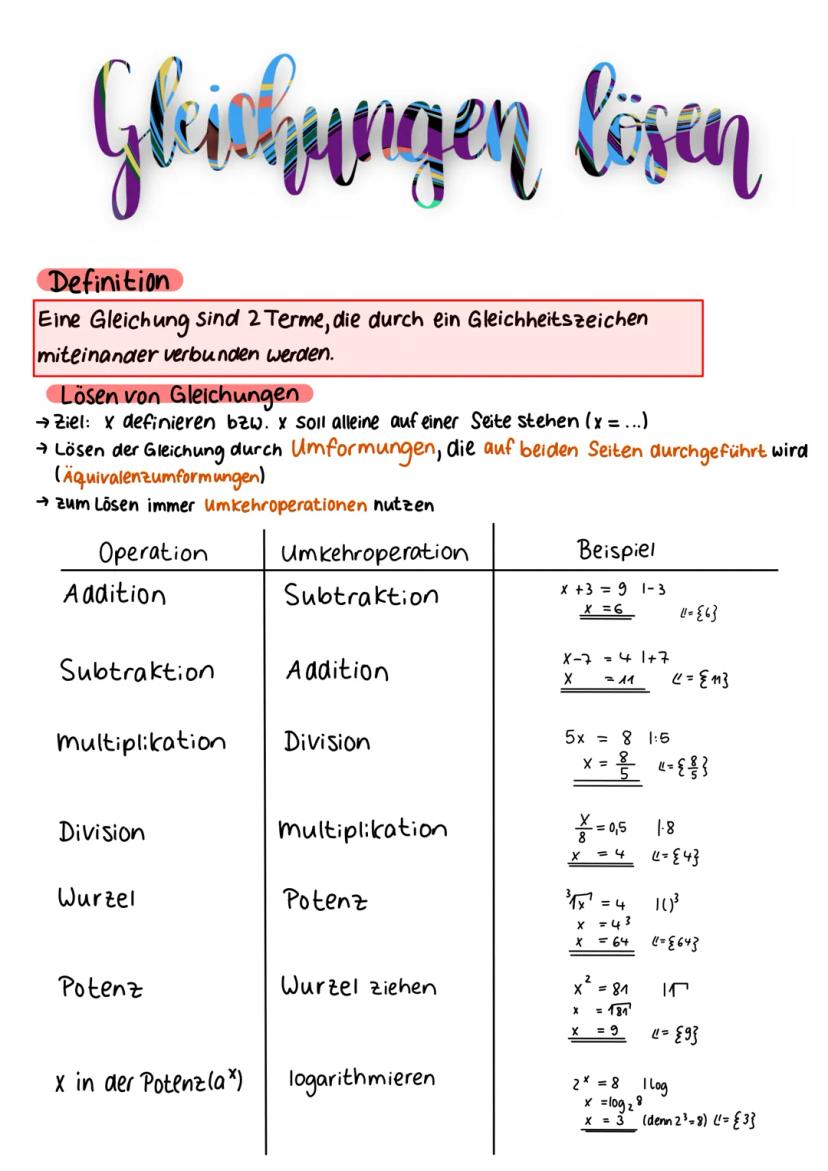 Gleichungen lösen
Definition
Eine Gleichung sind 2 Terme, die durch ein Gleichheitszeichen
miteinander verbunden werden.
Lösen von Gleichungen
→ Ziel: x definieren bzw. x soll alleine auf einer Seite stehen (x = ...)
→ Lösen der Gleichung durch Umformungen, die auf beiden Seiten durchgeführt wird
(Äquivalenzumformungen)
→ zum Lösen immer Umkehroperationen nutzen
Operation Umkehroperation Beispiel
Addition Subtraktion x + 3 = 9 |-3
x = 6 𝕃={6}
Subtraktion Addition x-7 = 4 |+7
x = 11 𝕃={11}
Multiplikation Division 5x = 8 |:5
x = 8/5 𝕃={8/5}
Division Multiplikation x/8 = 0,5 |·8
x = 4 𝕃={4}
Wurzel Potenz ³√x = 4 |()³
x = 4³
x = 64 𝕃={64}
Potenz Wurzel ziehen x² = 81 |√
x = √81
x = 9 𝕃={9}
x in der Potenz(aˣ) logarithmieren 2ˣ = 8 |log
x = log₂8
x = 3 (denn 2³=8) 𝕃={3}